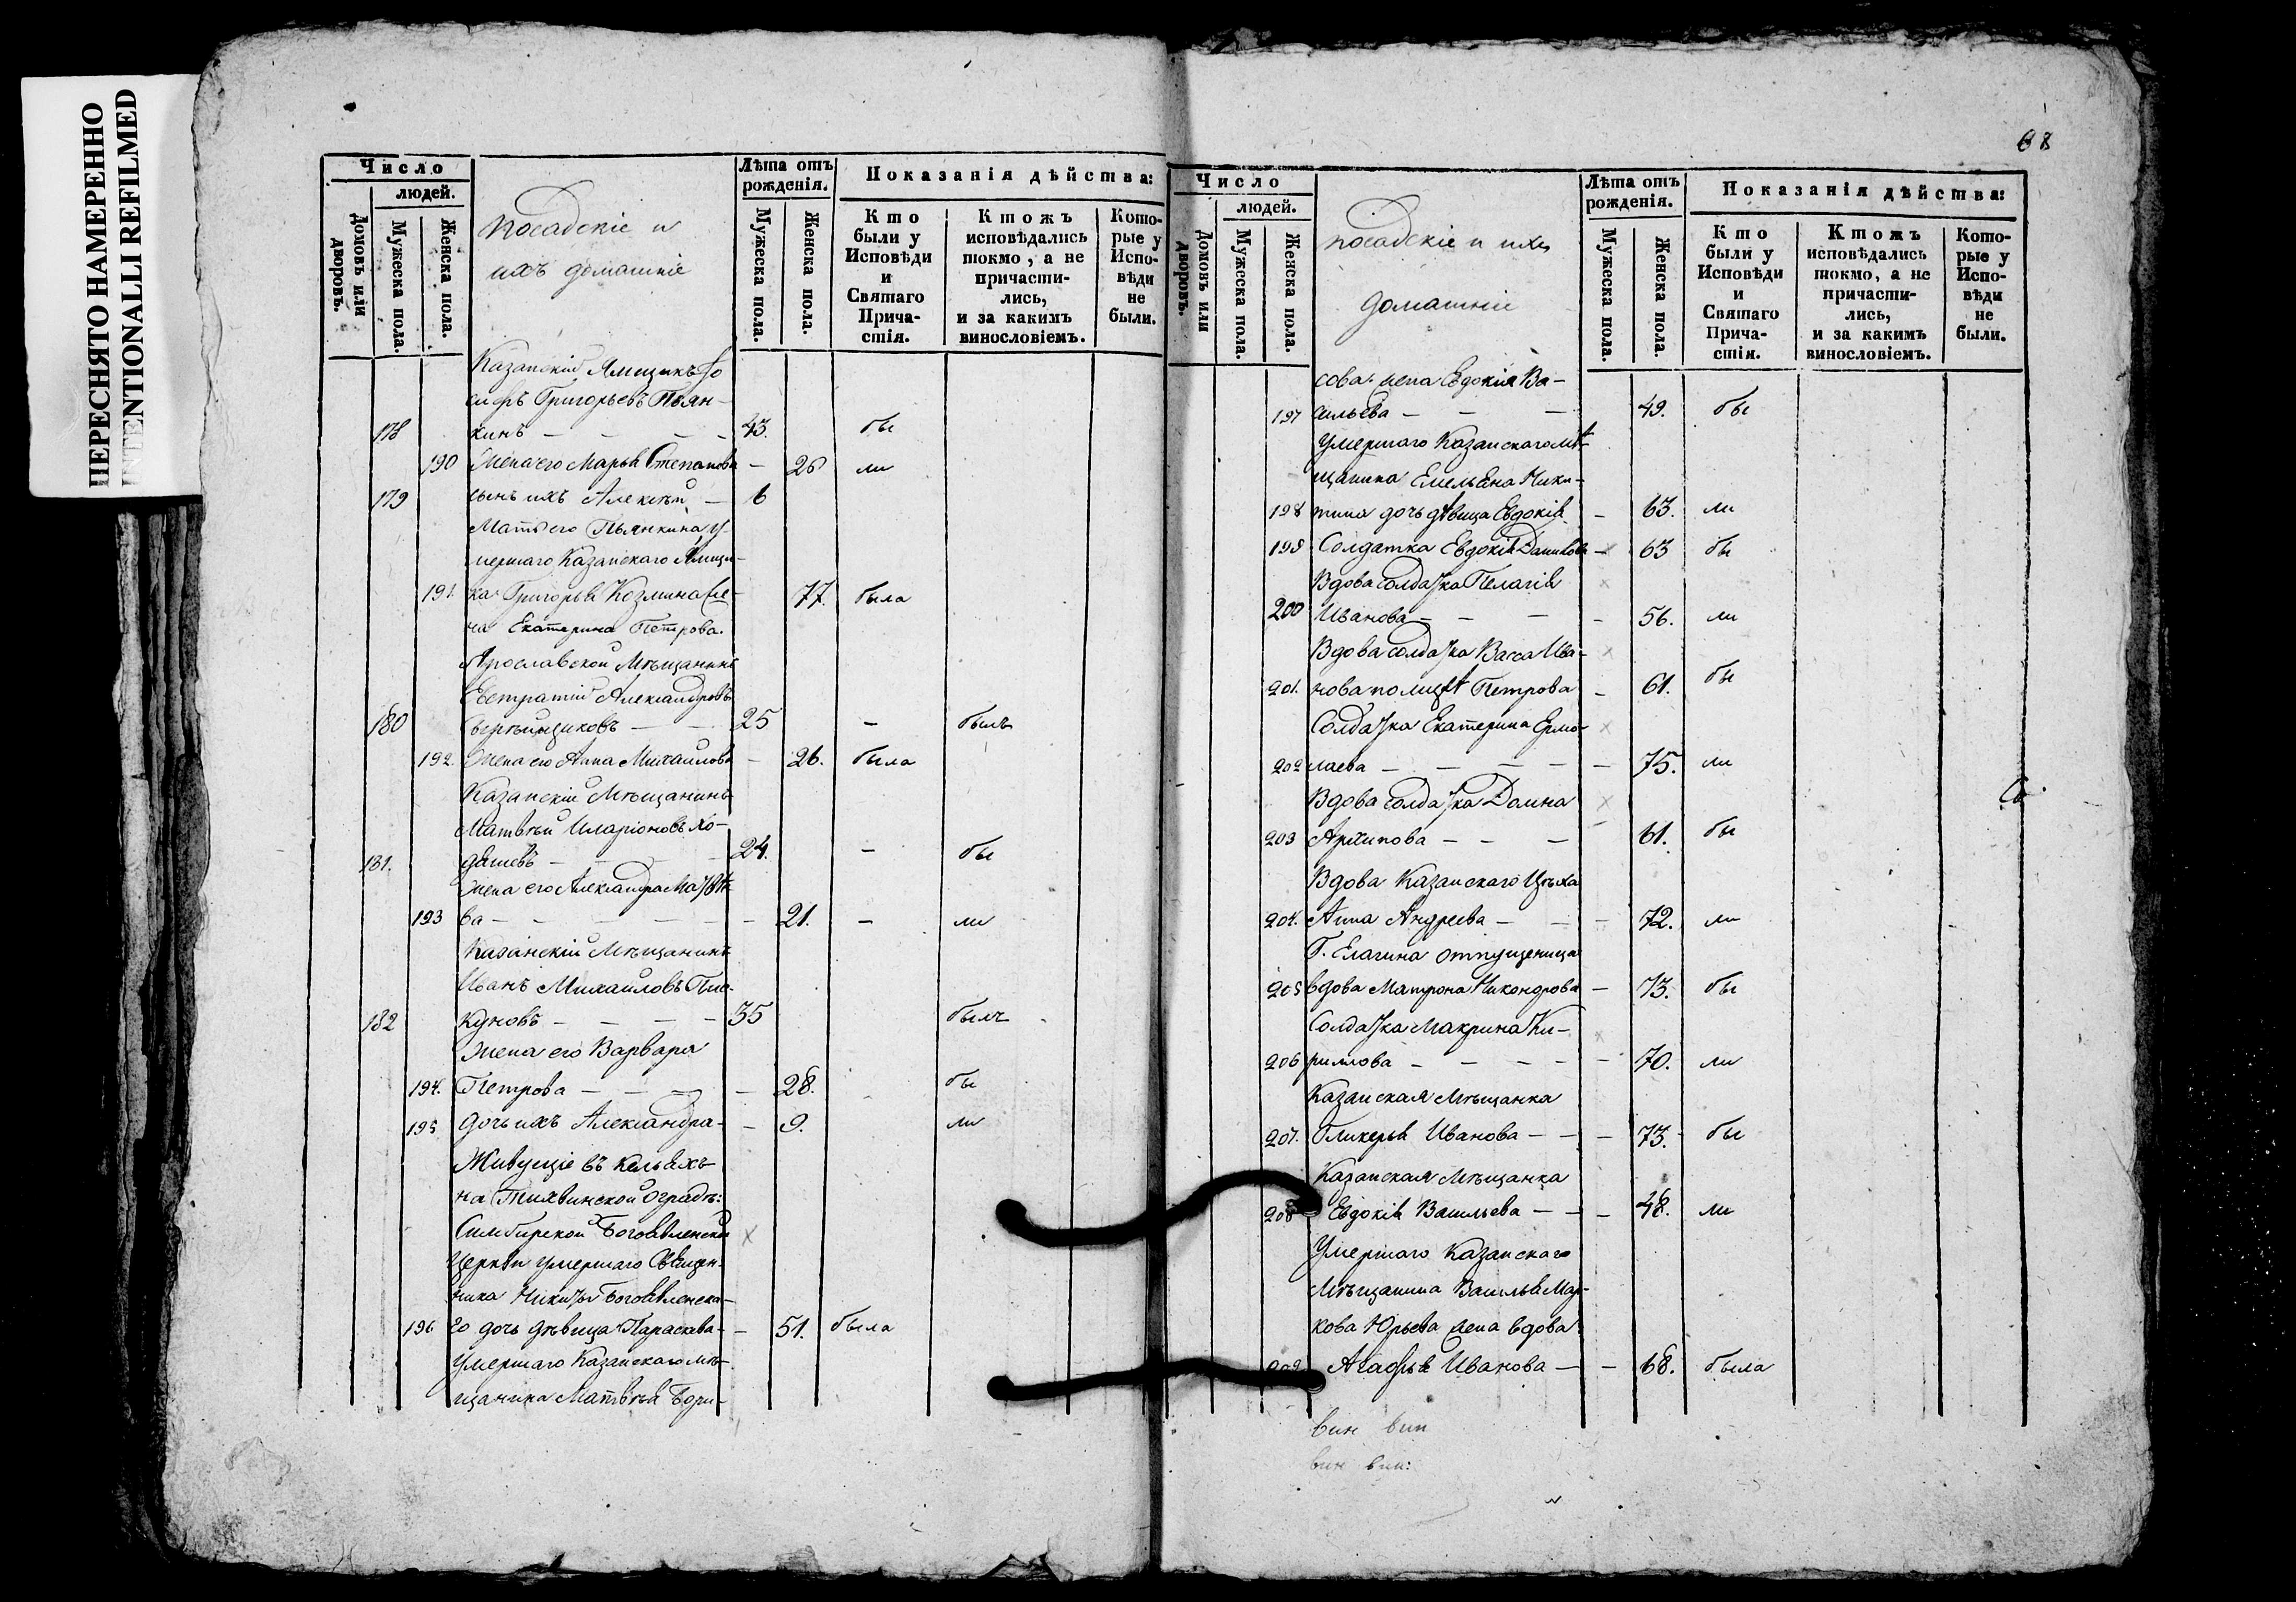 ПЕРЕСНЯТО НАМЕРЕННО
INTENTIONALLI REFILMED
Число
людей.
Домовъ или дворовъ.
Мужеска пола.
Женска пола.
посадскіе и
ихъ домашніе
Лѣта отъ
рожденія.
Мужеска пола.
Женска пола.
Показанія дѣйства:
Кто
были у
Исповѣди
и
Святаго
Прича-
стія.
Ктожъ
исповѣдались
токмо, а не
причасти-
лись,
и за какимъ
винословіемъ.
Кото-
рые у
Испо-
вѣди
не
были.
Казанскій Ямщикъ Іо
сифъ Григорьевъ Пьян-
178 кинъ — 43. бы
190 Жена его Марья Степанова — 26 ли
179 сынъ ихъ Алексѣй — 6
Мать его Пьянкина, у-
мершаго Казанскаго Ямщи-
191. ка Григорья Козмина же- 77. была
на Екатерина Петрова.
Ярославской Мѣщанинъ
Евстратій Александровъ
180 25 — былъ
192. Жена его Анна Михайлова — 26. была
Казанскій Мѣщанинъ
Матвѣй Иларіоновъ Хо-
181. дяшевъ — 24. — бы
Жена его Александра Матвѣе
193 ва — 21. — ли
Казанскій Мѣщанинъ
Иванъ Михайловъ Пис-
182 куновъ — 35 были
Жена его Варвара
194. Петрова — 28. бы
195 дочь ихъ Александра — 9. ли
Живущіе въ кельяхъ
на Тихвинской оградѣ:
Симбирской Богоявленской
Церкви умершаго Священ-
ника Никиты Богоявленска-
196 го дочь дѣвица Параскева — 51. была
Умершаго Казанскаго мѣ-
щанина Матвѣя Бори-
68
Число
людей.
Домовъ или дворовъ.
Мужеска пола.
Женска пола.
посадскіе и ихъ
домашніе
Лѣта отъ
рожденія.
Мужеска пола.
Женска пола.
Показанія дѣйства:
Кто
были у
Исповѣди
и
Святаго
Прича-
стія.
Ктожъ
исповѣдались
токмо, а не
причасти-
лись,
и за какимъ
винословіемъ.
Кото-
рые у
Испо-
вѣди
не
были.
сова жена Евдокія Ва-
197 сильева — 49. бы
Умершаго Казанскаго мѣ-
щанина Емельяна Ники-
198 тина дочь дѣвица Евдокія — 63. ли
199 Солдатка Евдокія Данилова — 63 бы
Вдова солдатка Пелагія
200 Иванова — 56. ли
Вдова солдатка Васса Ива-
201. нова Петрова — 61. бы
Солдатка Екатерина Ермо-
202 лаева — 75. ли
Вдова солдатка Домна
203 Архипова — 61. бы
Вдова Казанскаго Цѣха
204. Анна Андреева — 72. ли
Г. Елагина отпущеница
205 вдова Матрона Никонорова — 73. бы
Солдатка Макрина Ки-
206 рилова — 70. ли
Казанская Мѣщанка
207. Гликерья Иванова — 73. бы
Казанская Мѣщанка
208 Евдокія Васильева — 48. ли
Умершаго Казанскаго
Мѣщанина Василья Мар-
кова Юрьева жена вдова
209 Агафья Иванова — 68. была
вин вин
вин вин: